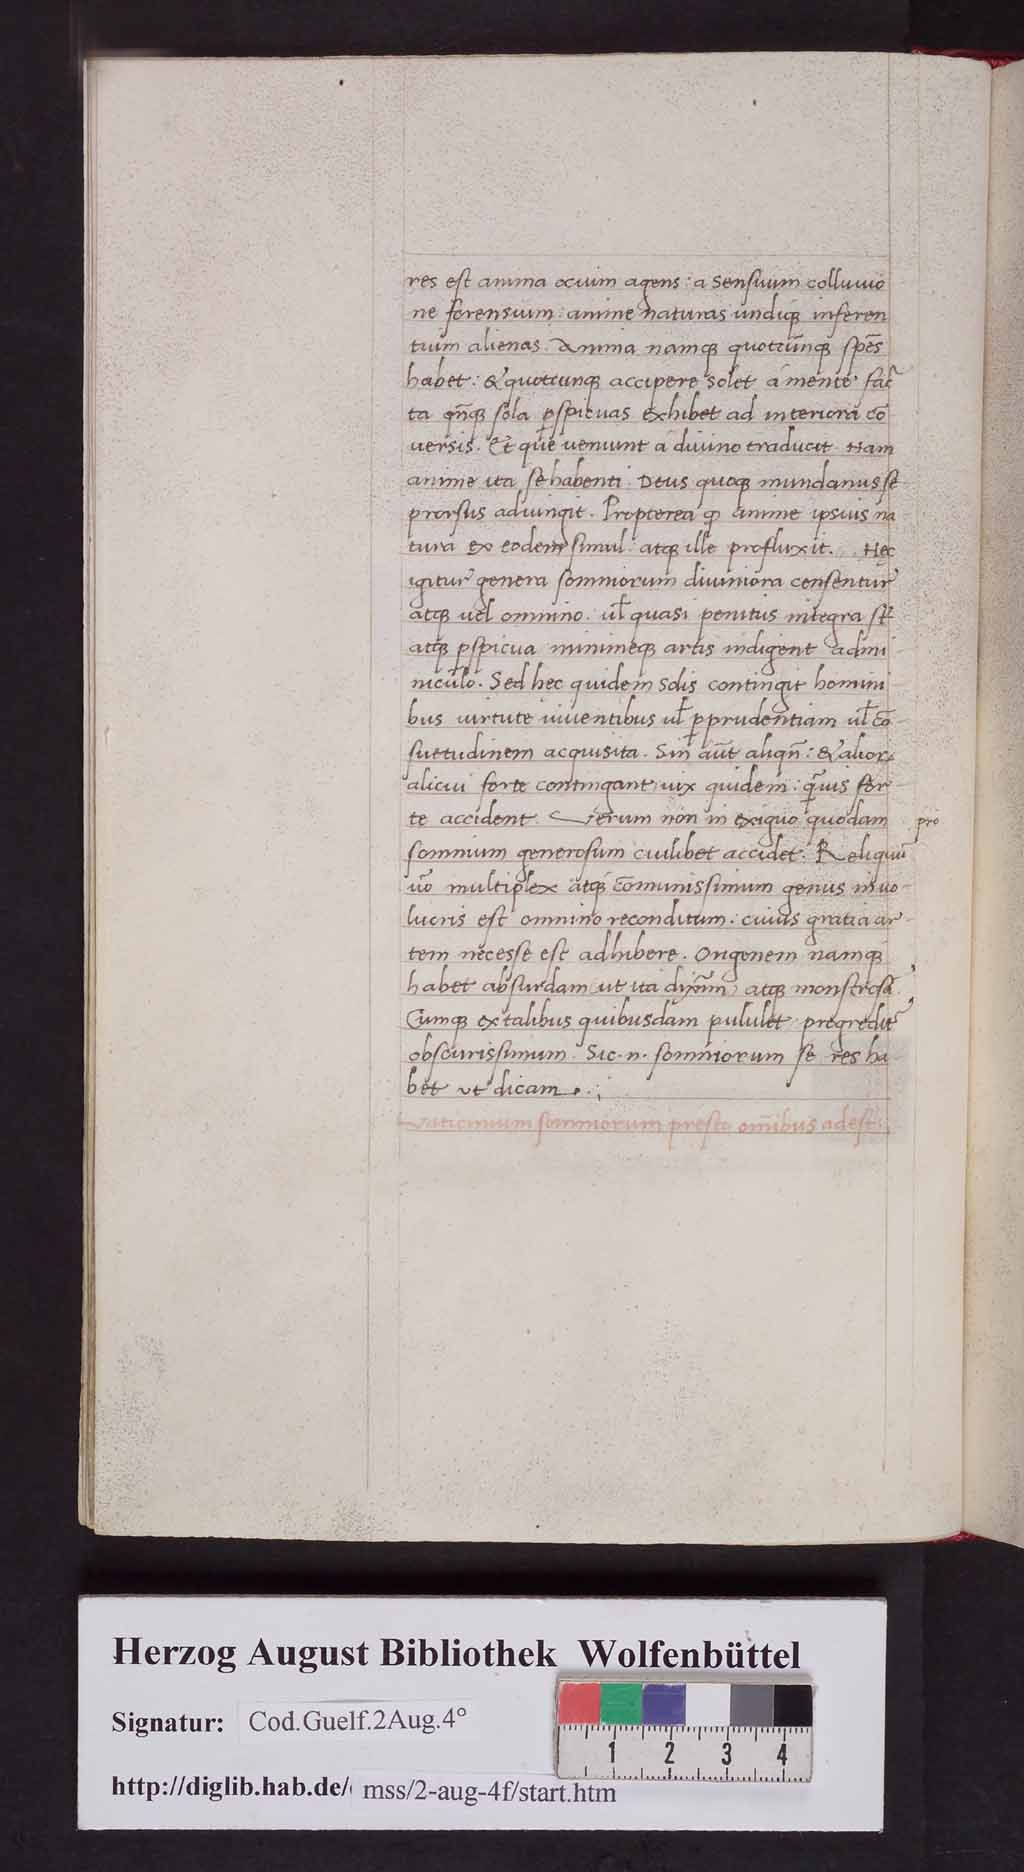 res est anima ocium agens : a sensuum colluuio
ne forensium : anime naturas undiq; inferen
tium alienas. Anima namq; quotcũnq; spẽs
habet : & quotcunq; accipere solet a mente fac
ta qñq; sola pspicuas exhibet ad interiora cõ
uersis. Et que ueniunt a diuino traducit. Nam
anime ita se habenti. Deus quoq; mundanus se
prorsus adiungit. Propterea ꝙ anime ipsius na
tura ex eodem simul : atq; ille profluxit. Hec
igitur genera somniorum diuiniora censentur
atq; uel omnino : ul̃ quasi penitus integra st̃
atq; pspicua minimeq; artis indigent admi
niculo. Sed hec quidem solis contingit homini
bus uirtute uiuentibus ul̃ p prudentiam ul̃ cõ-
suetudinem acquisita. Sin aũt aliqñ : & alior
alicui forte contingant uix quidem : q̃uis for-
te accident. Verum non in exiguo quodam pro
somnium generosum cuilibet accidet. Reliquũ
uo multiplex atq; cõmunissimum genus inuo-
lucris est omnino reconditum : cuius gratia ar-
tem necesse est adhibere. Originem namq;
habet absurdam (ut ita dixim) atq; monstrosã.
Cumq; ex talibus quibusdam pululet progredit
obscurissimum. Sic .n. somniorum se res ha
bet ut dicam.
Vaticinium somniorum presto oм̃ibus adest.
Herzog August Bibliothek Wolfenbüttel
Signatur: Cod.Guelf.2Aug.4°
1 2 3 4
http://diglib.hab.de/ mss/2-aug-4f/start.htm